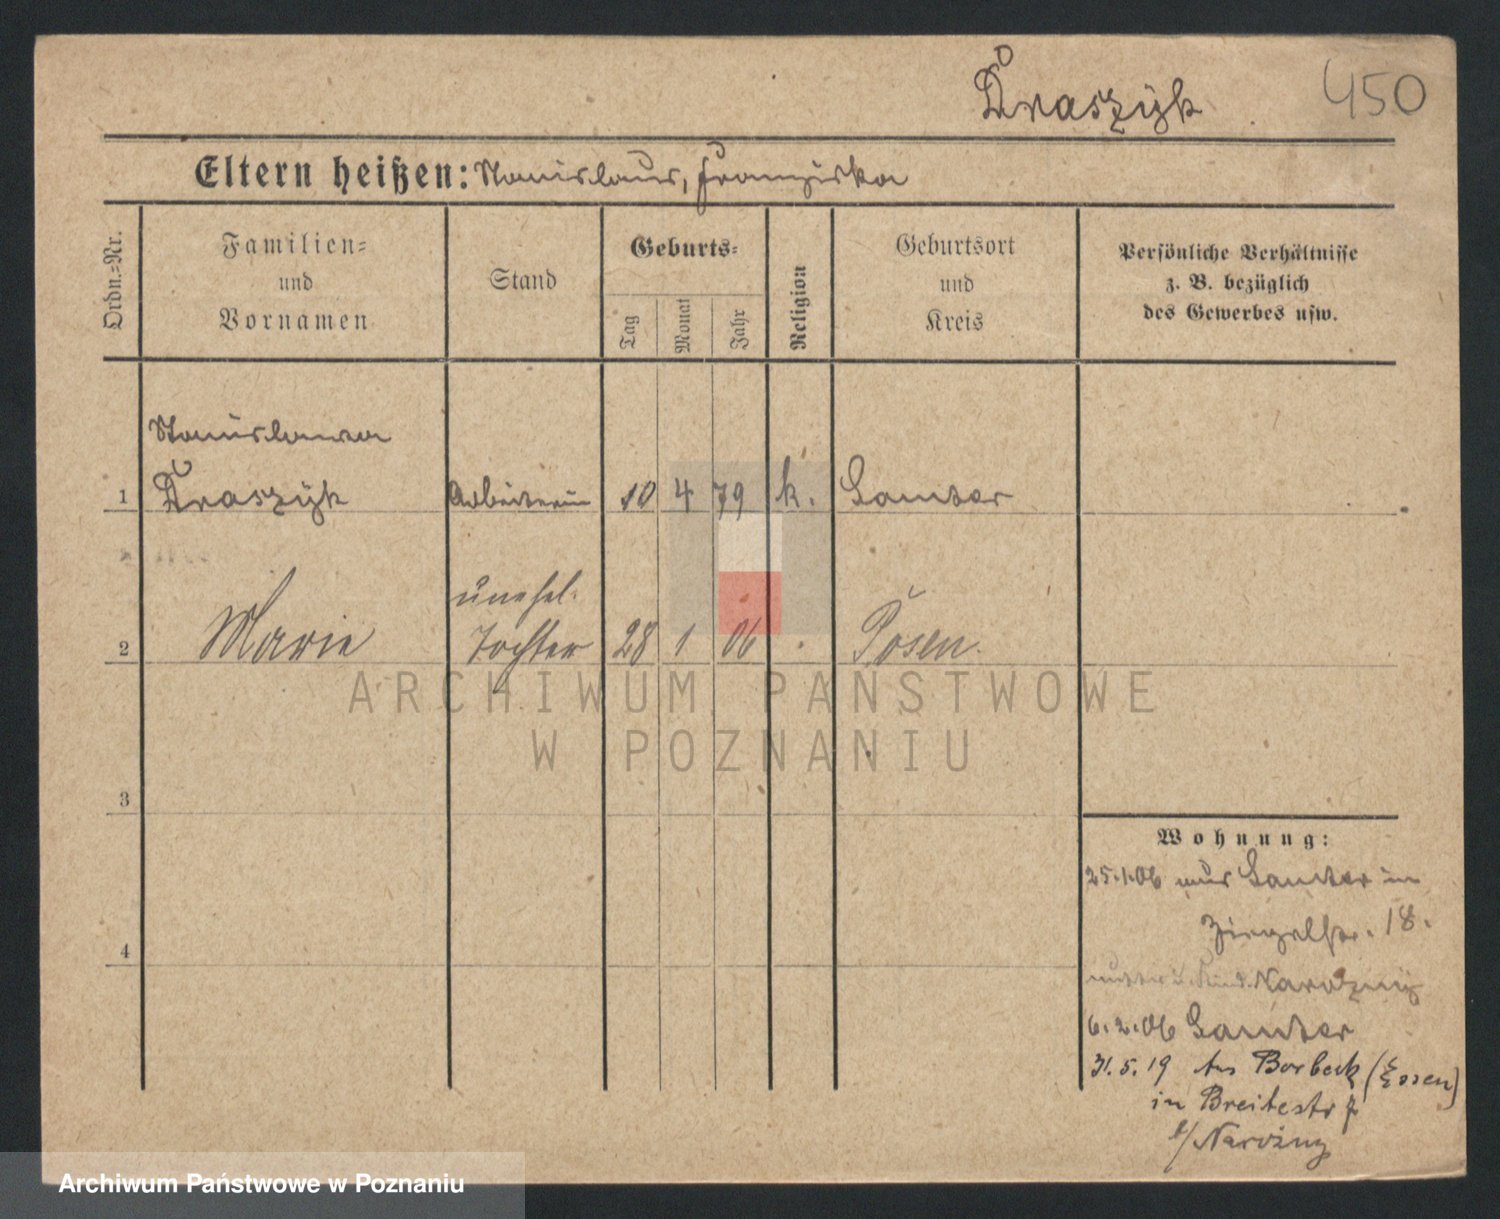 Draszyk
450
Eltern heißen: Stanislaus, Franziska
Ordn.-Nr.
Familien-
und
Vornamen
Stand
Geburts-
Tag
Monat
Jahr
Religion
Geburtsort
und
Kreis
Persönliche Verhältnisse
z. B. bezüglich
des Gewerbes usw.
Stanislawa
1 Draszyk Arbeiterin 10 4 79 k. Samter
unehel.
2 Marie Tochter 28 1 06 Posen
ARCHIWUM PAŃSTWOWE
W POZNANIU
3
Wohnung:
25.1.06 aus Samter in
Ziegelstr. 18.
4
Mutter u. Kind
6.2.06 Samter
31.5.19 Aus Borbeck (Essen)
in Breitestr 7
b/ Narożny
Archiwum Państwowe w Poznaniu